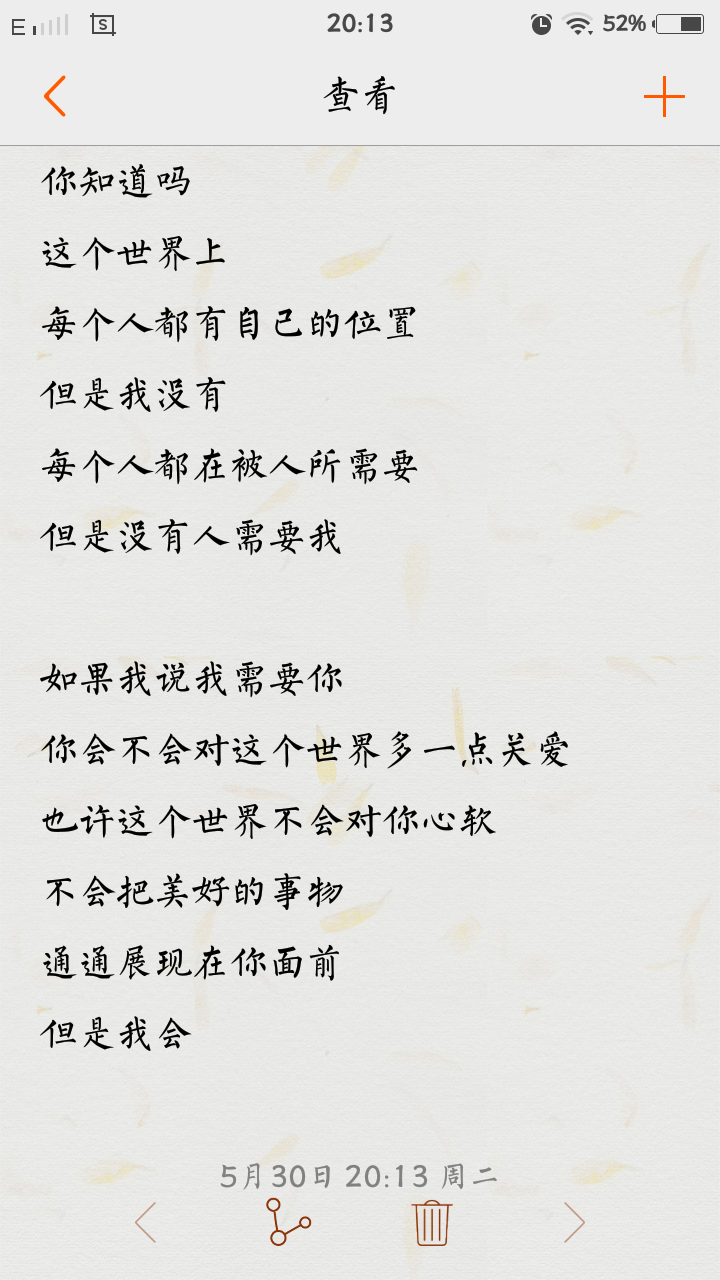 E 20:13 52%
查看
你知道吗
这个世界上
每个人都有自己的位置
但是我没有
每个人都在被人所需要
但是没有人需要我
如果我说我需要你
你会不会对这个世界多一点关爱
也许这个世界不会对你心软
不会把美好的事物
通通展现在你面前
但是我会
5月30日 20:13 周二